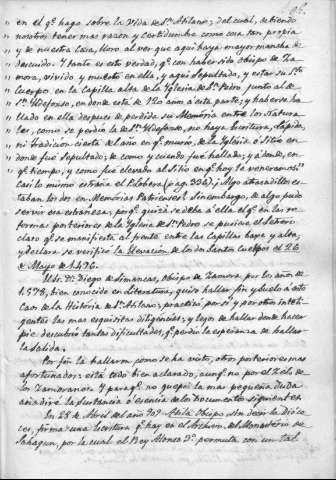 en el q.e hago sobre la Vida de S.n Atilano; del cual, debiendo
nosotros tener mas razon y certidumbre como cosa tan propia
y de nuestra casa, lloro al ver que aqui haya mayor mancha de
descuido. Y tanto es esto verdad, q.e con haber sido Obispo de Za
mora, vivido y muerto en ella, y aqui Sepultado, y estar su S.to
Cuerpo en la Capilla alta de la Iglesia de S.n Pedro junto al de
S.n Ildefonso, en donde está de 120 años á esta parte; y haberse ha
llado en ella despues de perdida su Memoria entre los Natura
les, como se perdió la de S.n Ildefonso, no haya Escritura, Lápida,
ni tradicion cierta del año en q.e murió, de la Iglesia ó Sitio en
donde fue Sepultado; de como y cuando fué hallado; y á donde, en
q.e tiempo, y como fue elevado al Sitio en q.e hoy le veneramos."
Casi lo mismo estraña el Florez (pag. 336) Algo atrasadillos es
taban los dos en Memorias Patrienses. Sinembargo, de algo pudo
servir esa estrañeza; porq.e quizá se deba á ella el q.e en las re
formas posteriores de la Iglesia de S.n Pedro se pusiera el letrero
claro q.e se manifiesta al frente entre las Capillas baxa y alta,
y declara se verificó la Elevacion de los dos Santos Cuerpos el 26
de Mayo de 1496.
El Sr. D. Diego de Simancas, Obispo de Zamora por los años de
1578, bien conocido en Literatura, quiso hallar fin y suelo á este
Caos de la Historia de S.n Atilano; practicó por sí y por otros inteli
gentes las mas esquisitas diligencias; y lejos de hallar donde hacer
pie descubrió tantas dificultades, q.e perdió la esperanza de hallar
la salida.
Por fin la hallaron como se ha visto, otros posteriores mas
afortunados: está todo bien aclarado, aunq.e no por el Zelo de
los Zamoranos. Y paraq.e no quepa la mas pequeña duda
añadiré la Sustancia ó esencia de los Documentos siguientes.
En 28 de Abril del año 909 Atila Obispo sin decir la dióce
sis, firma una Escritura q.e hay en el Archivo del Monasterio de
Sahagun, por la cual el Rey Alonso 3.o permuta con un tal